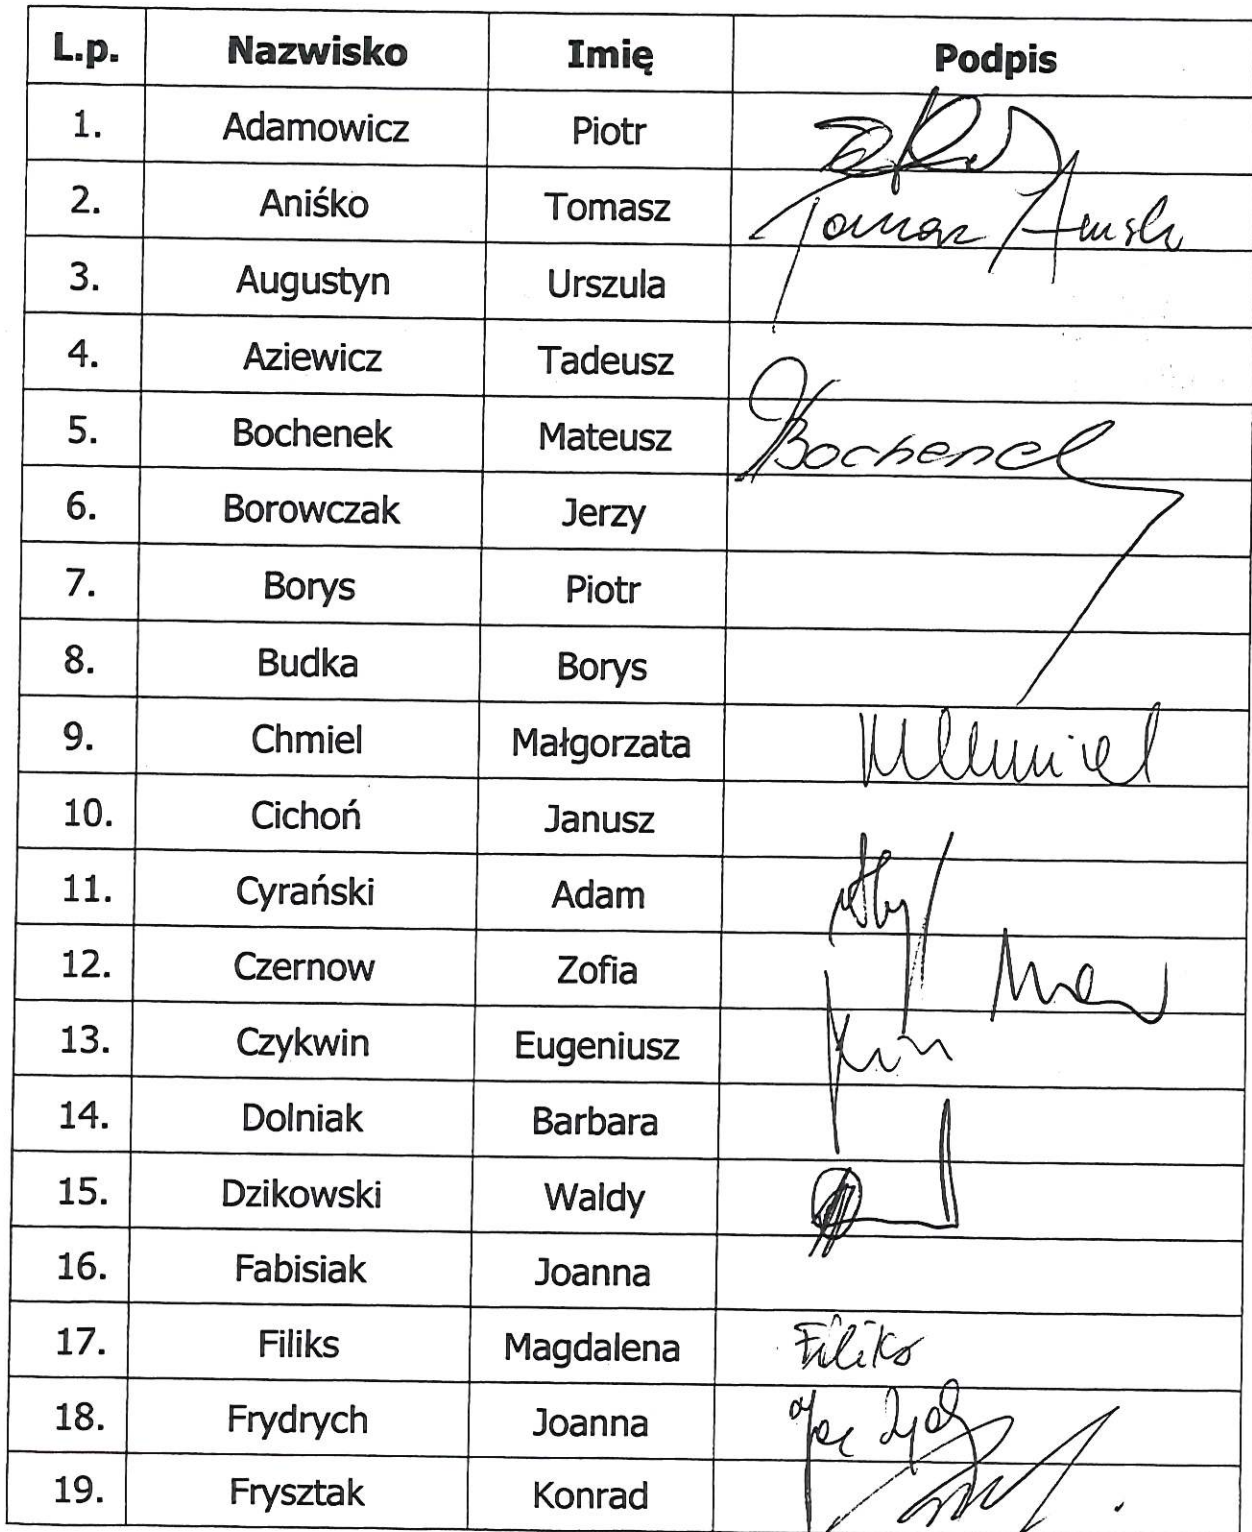 L.p. Nazwisko Imię Podpis
1. Adamowicz Piotr
2. Aniśko Tomasz Tomasz
3. Augustyn Urszula
4. Aziewicz Tadeusz
5. Bochenek Mateusz Bochenek
6. Borowczak Jerzy
7. Borys Piotr
8. Budka Borys
9. Chmiel Małgorzata MChmiel
10. Cichoń Janusz
11. Cyrański Adam
12. Czernow Zofia
13. Czykwin Eugeniusz
14. Dolniak Barbara
15. Dzikowski Waldy
16. Fabisiak Joanna
17. Filiks Magdalena Filiks
18. Frydrych Joanna
19. Frysztak Konrad